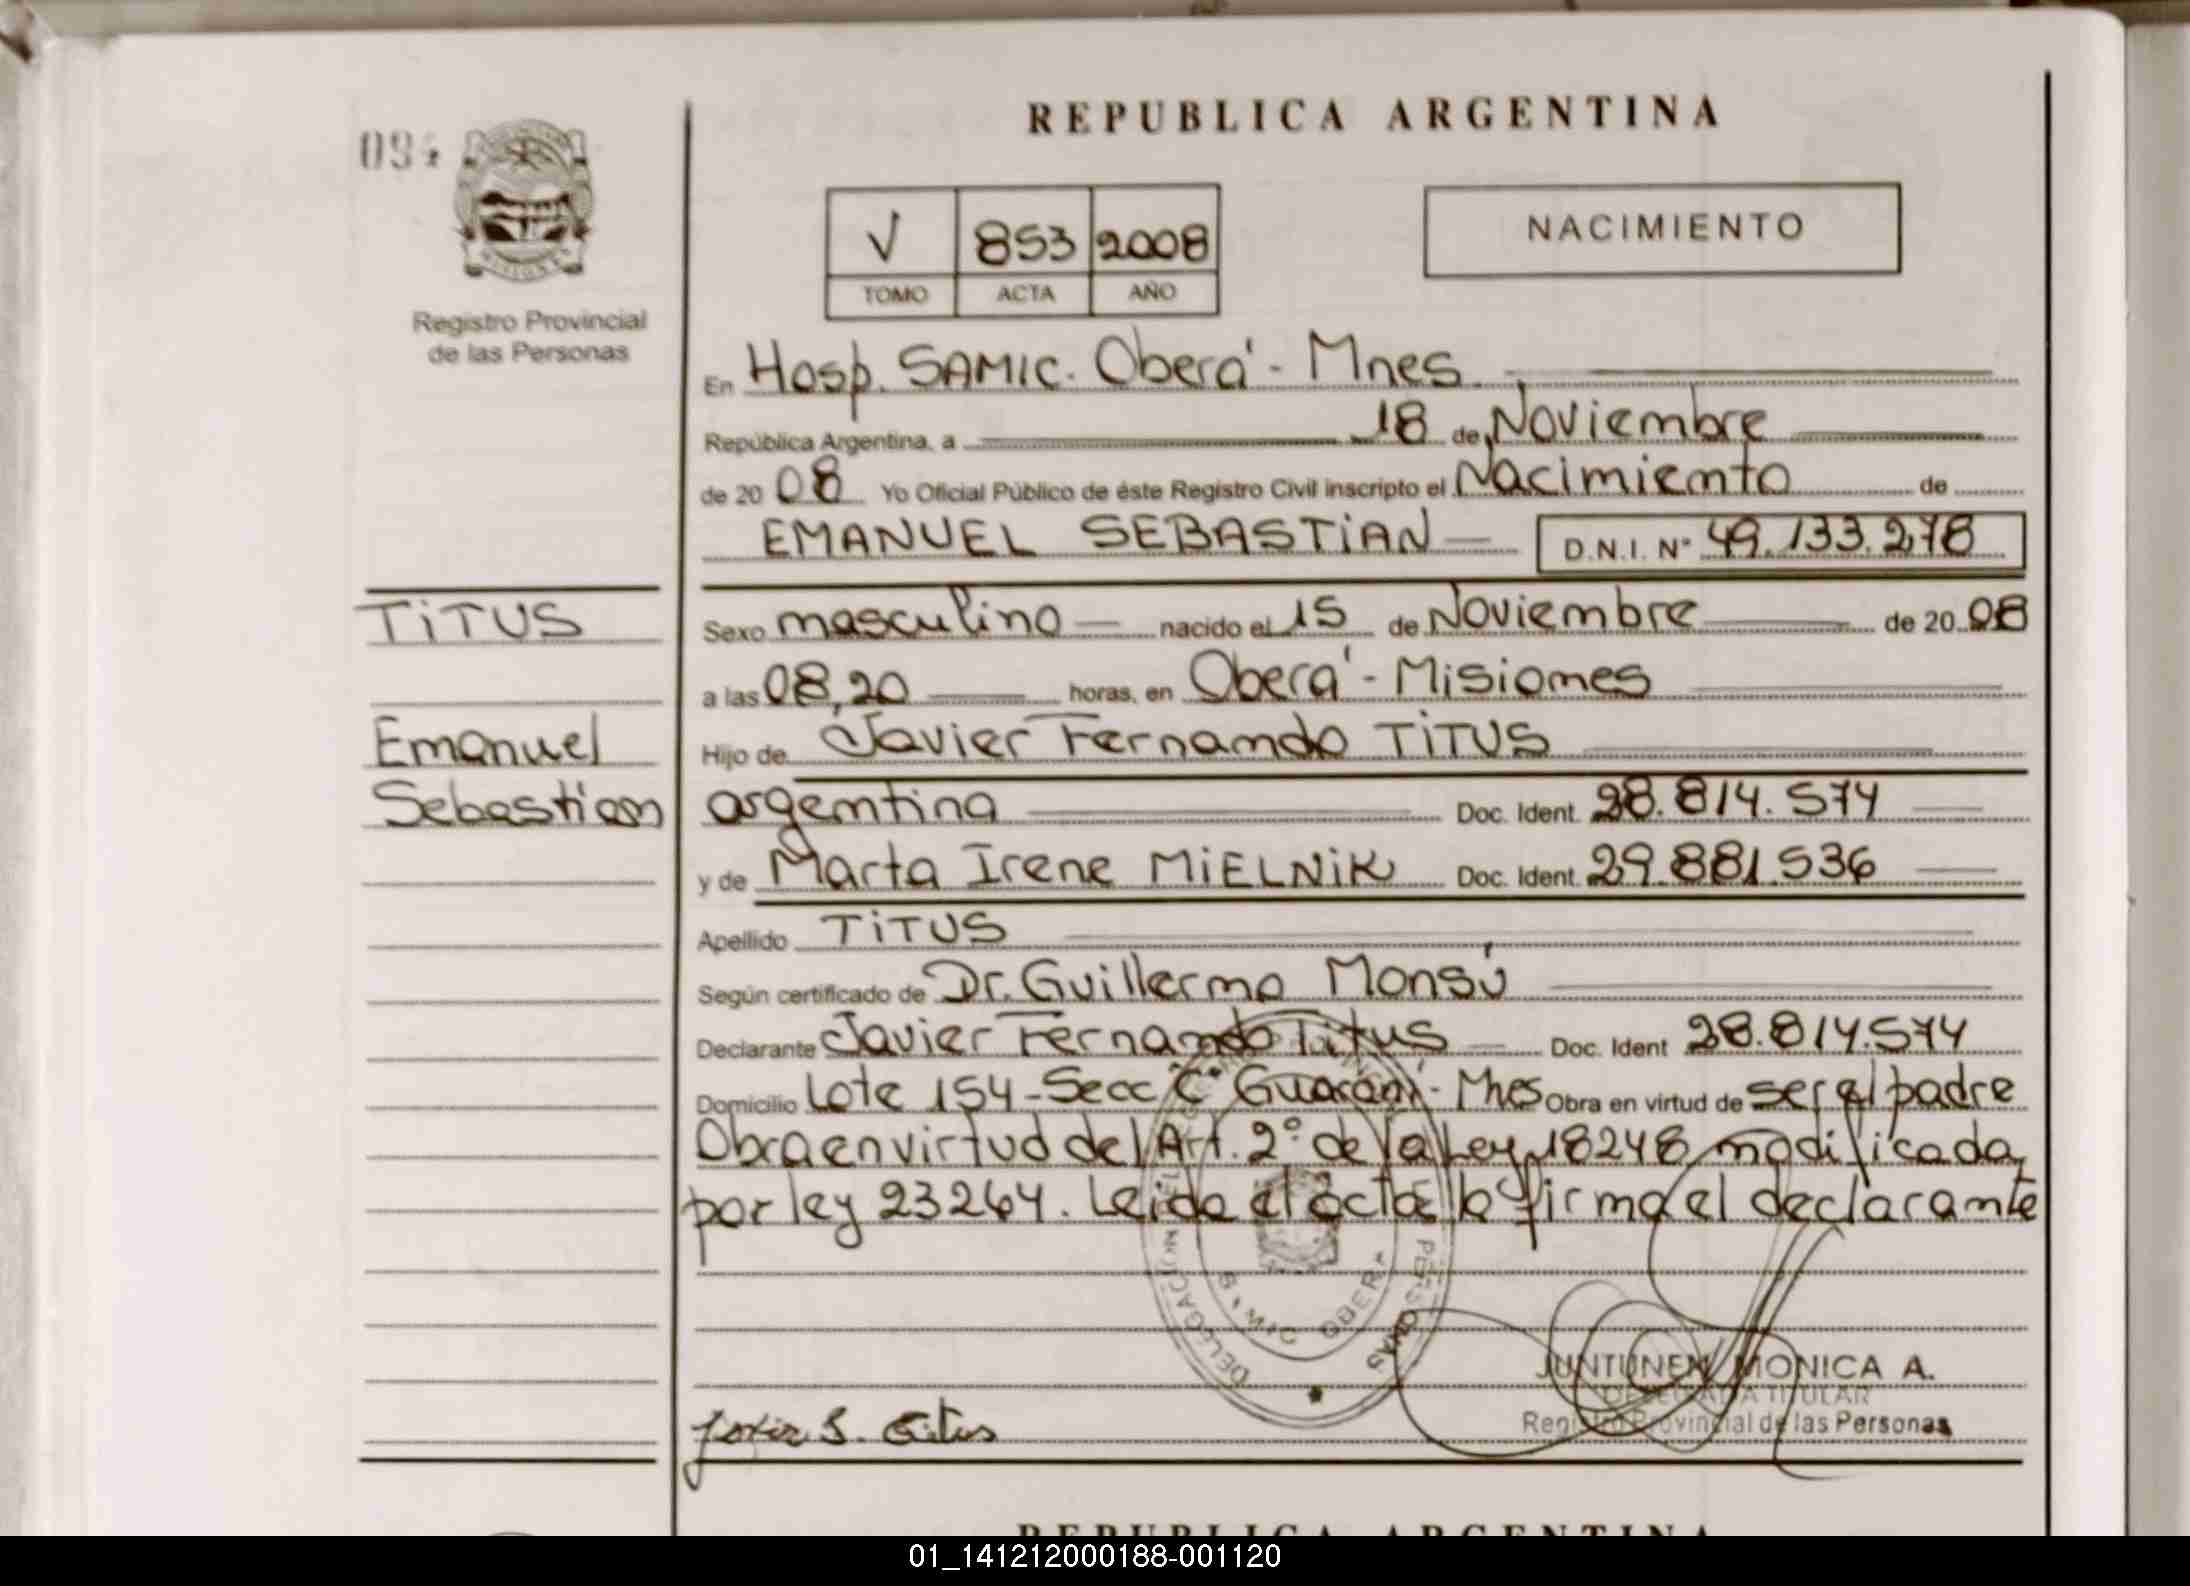 REPUBLICA ARGENTINA
09
MISIONES
Registro Provincial
de las Personas
V 853 2008
TOMO ACTA AÑO
NACIMIENTO
En Hosp. SAMIC. Oberá - Mnes.
República Argentina, a 18 de Noviembre
de 20 08 Yo Oficial Público de éste Registro Civil inscripto el Nacimiento de
EMANUEL SEBASTIAN D.N.I. Nº 49.133.278
TITUS
Sexo masculino nacido el 15 de Noviembre de 20 08
a las 08,20 horas, en Oberá - Misiones
Emanuel
Hijo de Javier Fernando TITUS
Sebastian
argentina Doc. Ident. 28.814.574
y de Marta Irene MIELNIK Doc. Ident. 29.881.536
Apellido TITUS
Según certificado de Dr. Guillermo Monsú
Declarante Javier Fernando Titus Doc. Ident 28.814.574
Domicilio Lote 154 - Secc "C" Guaraní - Mnes Obra en virtud de ser el padre
Obra en virtud del Art. 2º de la Ley 18248 modificada
por ley 23264. Leida el acta la firma el declarante
DELEGACION
SAMIC OBERA
PERSONAS
JUNTUNEN MONICA A.
DELEGADA TITULAR
Registro Provincial de las Personas
Titus
REPUBLICA ARGENTINA
01_141212000188-001120